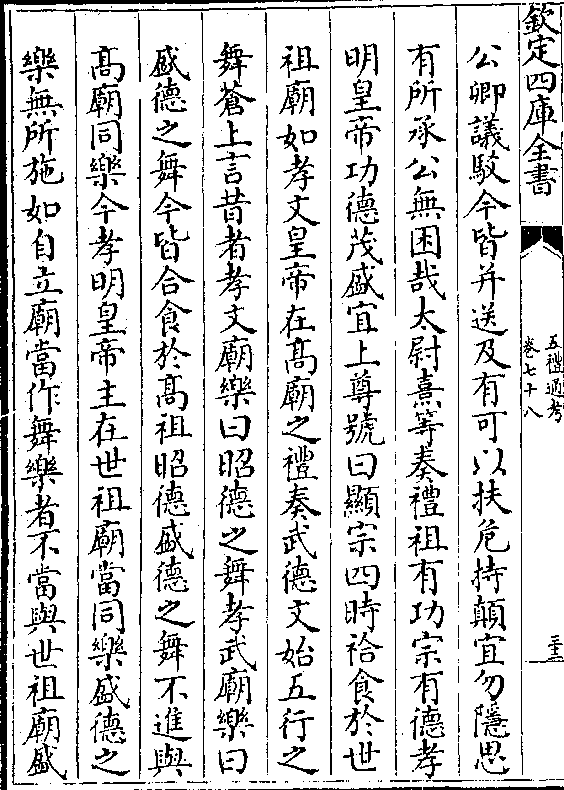 欽定四庫全書
五禮通考
卷七十八
三十三
公卿議駁今皆并送及有可以扶危持顛宜勿隱思
有所承公無困哉太尉熹等奏禮祖有功宗有德孝
明皇帝功德茂盛宜上尊號曰顯宗四時祫食於世
祖廟如孝文皇帝在髙廟之禮奏武德文始五行之
舞蒼上言昔者孝文廟樂曰昭德之舞孝武廟樂曰
盛德之舞今皆合食於髙祖昭德盛德之舞不進與
髙廟同樂今孝明皇帝主在世祖廟當同樂盛德之
樂無所施如自立廟當作舞樂者不當與世祖廟盛